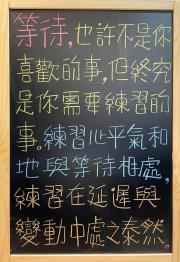 等待,也許不是你
喜歡的事,但終究
是你需要練習的
事。練習心平氣和
地與等待相處,
練習在延遲與
變動中處之泰然。